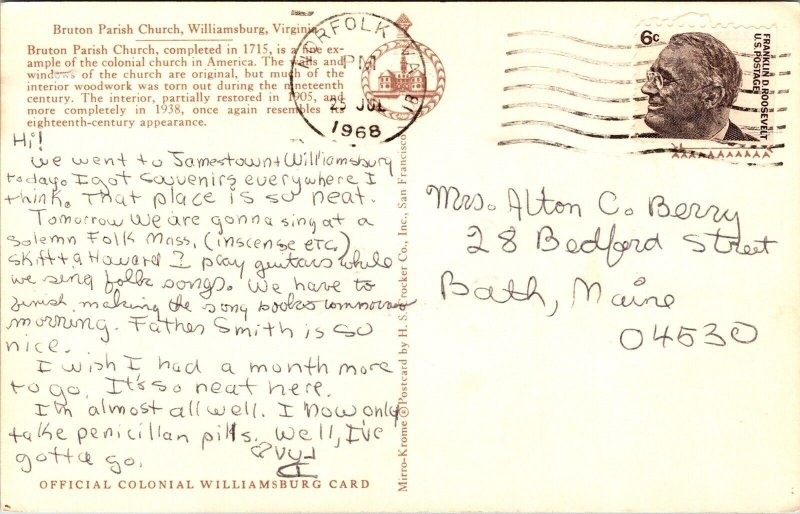 Bruton Parish Church, Williamsburg, Virginia
Bruton Parish Church, completed in 1715, is a fine ex-
ample of the colonial church in America. The walls and
windows of the church are original, but much of the
interior woodwork was torn out during the nineteenth
century. The interior, partially restored in 1905, and
more completely in 1938, once again resembles its
eighteenth-century appearance.
NORFOLK, VA.
PM
25 JUL
1968
6c
FRANKLIN D. ROOSEVELT
U.S. POSTAGE
Hi!
We went to Jamestown + Williamsburg
today. I got souvenirs everywhere I
think. That place is so neat.
Tomorrow we are gonna sing at a
solemn Folk Mass, (inscense etc.)
Skift & Howard I play guitars while
we sing folk songs. We have to
finish making the song books tommorow
morning. Father Smith is so
nice.
I wish I had a month more
to go. It's so neat here.
I'm almost all well. I now only
take penicillan pills. Well, I've
gotta go.
OFFICIAL COLONIAL WILLIAMSBURG CARD
Mirro-Krome ® Postcard by H. S. Crocker Co., Inc., San Francisco
Mrs. Alton C. Berry
28 Bedford Street
Bath, Maine
04530